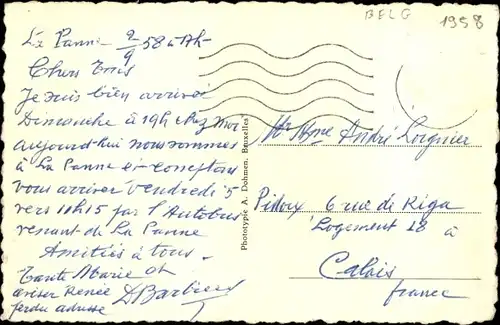 BELG 1958
La Panne 2/9 58 à 17h
Chers Tous
Je suis bien arrivée
Dimanche à 19h chez moi
aujourd'hui nous sommes
à La Panne et comptons
vous arriver vendredi 5
vers 11h15 par l'Autobus
venant de La Panne
Amitiés à tous.
Tante Marie et
aviser Renée D Barbieux
perdu adresse
Phototypie A. Dohmen, Bruxelles
Mr Mme André Loignier
Pidoux 6 rue de Riga
Logement 18 à
Calais
france